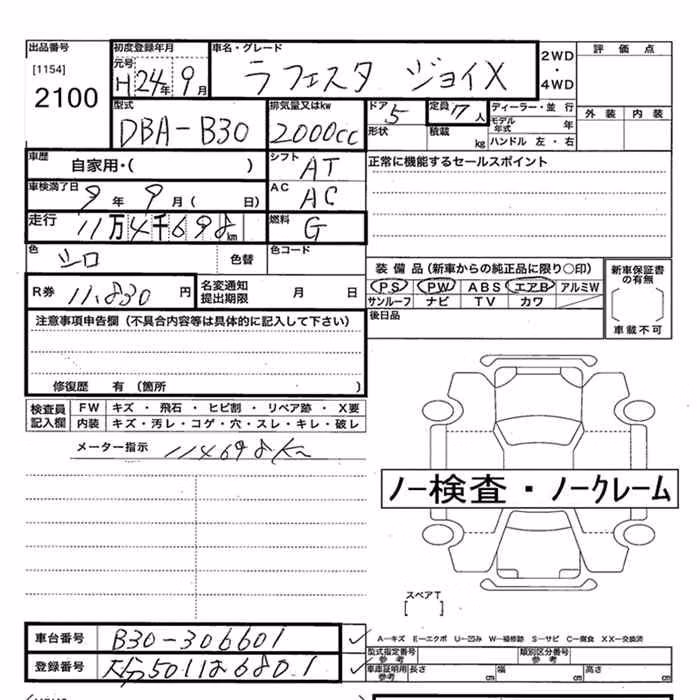 出品番号 初度登録年月 車名・グレード 評価点
[1154] 元号 2WD
2100 H 24年 9月 ラフェスタ ジョイX ・ 4WD
型式 排気量又はkw ドア 5 定員 7人 ディーラー・並行 外装 内装
DBA-B30 2000cc 形状 積載 kg モデル年式 年
ハンドル 左・右
車歴 自家用・( ) シフト AT 正常に機能するセールスポイント
車検満了日 9年 9月( 日) AC AC
走行 11万4千698km 燃料 G
色 シロ 色替 色コード
装備品(新車からの純正品に限り○印) 新車保証書の有無
R券 11,830円 名変通知提出期限 月 日 PS PW ABS エアB アルミW
サンルーフ ナビ TV カワ
後日品 車載不可
注意事項申告欄(不具合内容等は具体的に記入して下さい)
修復歴 有(箇所 )
検査員 FW キズ・飛石・ヒビ割・リペア跡・X要
記入欄 内装 キズ・汚レ・コゲ・穴・スレ・キレ・破レ
メーター指示 114698k
ノー検査・ノークレーム
スペアT
[ ]
車台番号 B30-306601
A－キズ E－エクボ U－凹み W－補修跡 S－サビ C－腐食 XX－交換済
型式指定番号 参考 類別区分番号 参考
登録番号 大分501は6801 車庫証明用 参考 長さ cm 幅 cm 高さ cm